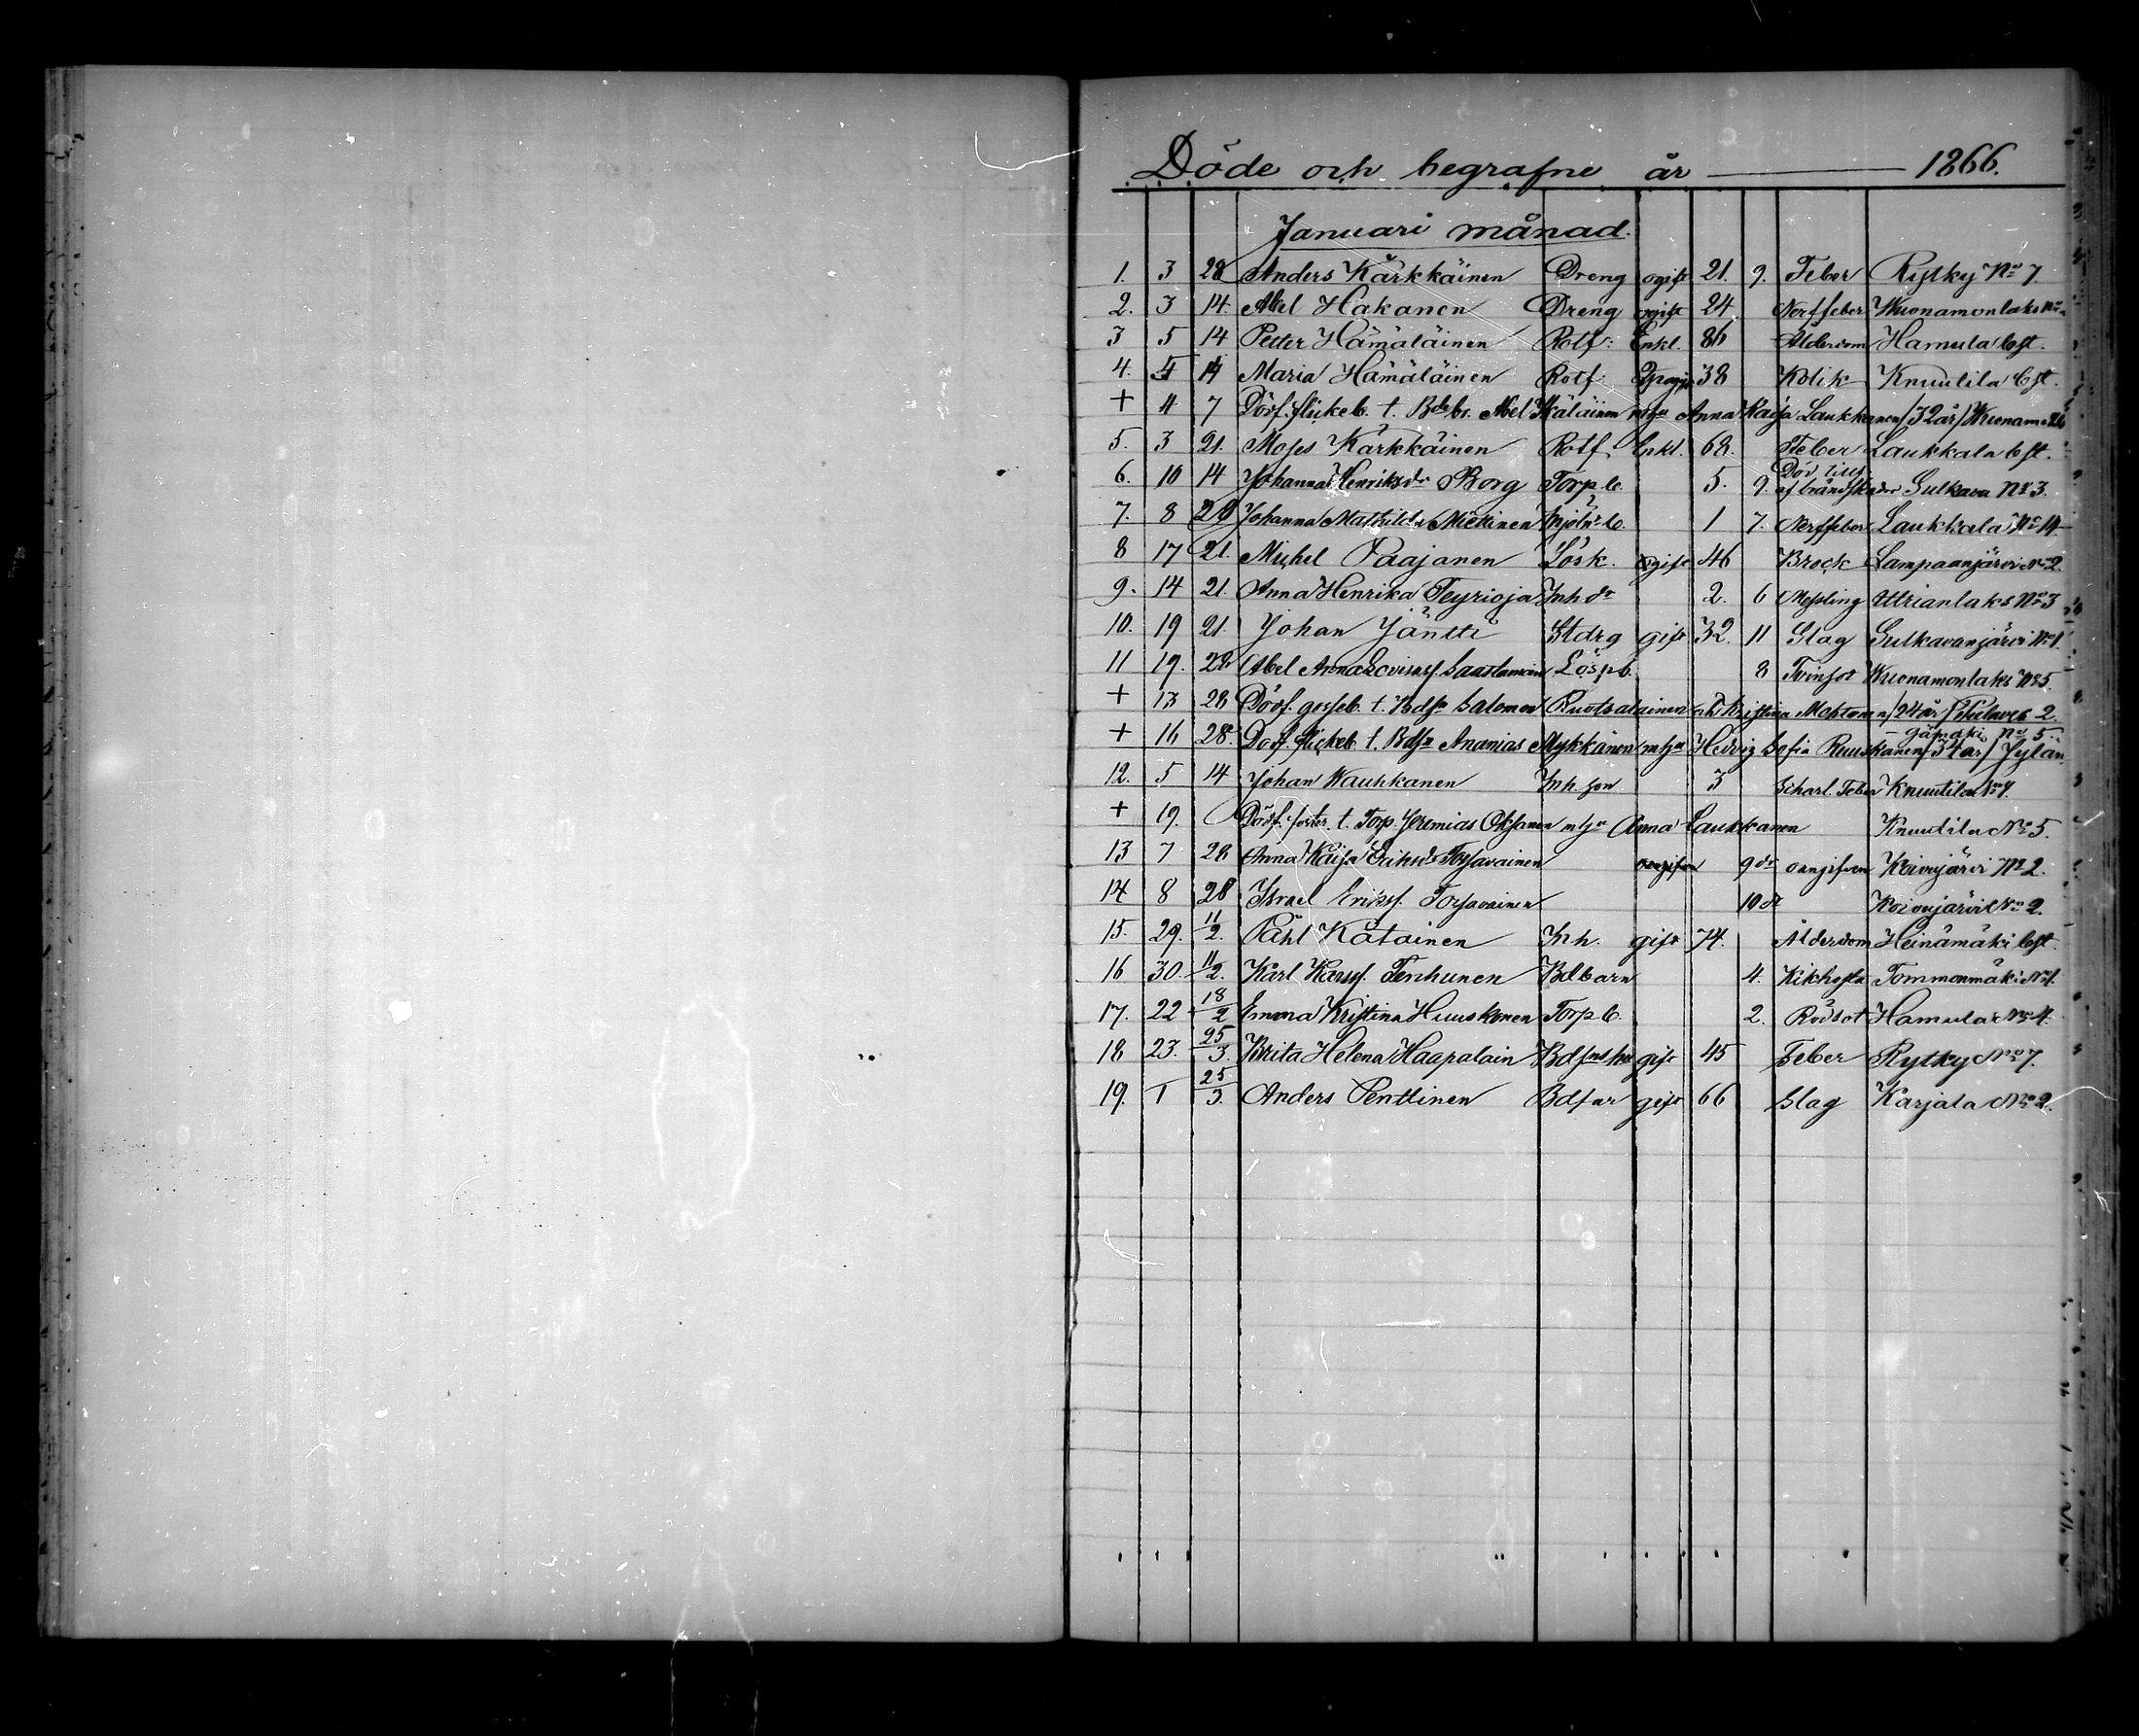 Döde och begrafne år — 1866.
Januari månad.
1. 3 28 Anders Kärkkäinen Dreng ogift 21. 9. Feber Rytky No 7.
2. 3 14. Abel Hakanen Dreng ogift 24 Nerffeber Wuonamonlaks No
3 5 14 Petter Hämäläinen Rotf: Enkl. 86 Ålderdom Hamula bst.
4. 4 14 Maria Hämäläinen Rotf: 38 Kolik Knuutila bst.
+ 4 7 Döf. flickeb. t. Bdebr. Abel Käläinen Anna Kaisa Laukkanen /32 år/ Wuonam
5. 3 21. Moses Kärkkäinen Rotf. Enkl. 68. Feber Laukkala bst.
6. 10 14 Johanna Henriksdr Borg Torp b. 5. 9. Död af brändskador Sulkava No 3.
7. 8 28 Johanna Mathilda Miettinen Mjöln b. 1 7. Nerffeber Laukkala No 14
8 17 21. Michel Paajanen Lösk. ogift 46 Brock Lampaanjärvi No 2.
9. 14 21. Anna Henrika Teyrioja Inh dr 2. 6 Messling Utrianlaks No 3
10. 19 21. Johan Jäntti Stdrg gift 32. 11 Slag Sulkavanjärvi No 1.
11 19. 28 Abel Anna Lovisas. Saastamoin Lösp b. 8 Tvinsot Wuonamonlaks No 5.
+ 13 28 Dööf. gosseb. t. Bdsn Salomon Ruotsalainen Kristina Mehtonen /24 år/ 2.
+ 16 28. Dööf. flickeb. t. Bdsn Ananias Mykkänen Hedvig Sofia Ruuskanen /34 år/ Jylän
gämäki No 5
12. 5 14 Johan Wauhkanen Inh. son 3 Scharl. Feber Knuutila No 4.
+ 19. Dööf. foster. t. Torp. Jeremias Oksanen Anna Laukkanen Knuutila No 5.
13 7 28 Anna Kaisa Eriksdr Torsavainen 9 dr oangifven Koivujärvi No 2.
14 8 28 Israel Erikss. Torsavainen 10 dr Koivujärvi No 2.
15. 29. 11/2. Påhl Katainen Inh. gift 74. Ålderdom Heinämäki bst.
16 30. 11/2. Karl Karss. Tenhunen Bdbarn 4. Kikhosta Tommonmäki No 1.
17. 22 18/2 Emma Kristina Huuskonen Torp b. 2. Rödsot Hamula No 4.
18 23. 25/3. Brita Helena Haapalain gift 45 Feber Rytky No 7.
19. 1 25/3. Anders Penttinen gift 66 Slag Karjala No 2.